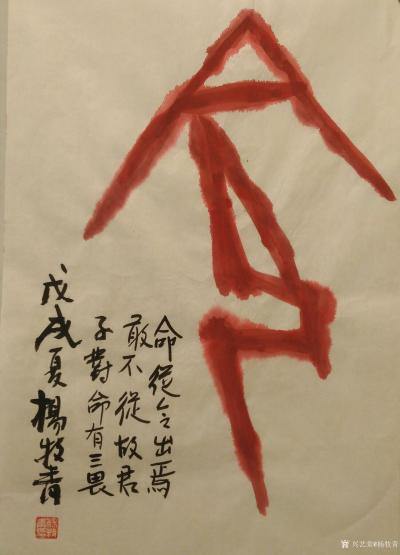 命
命從令出焉
敢不從故君
子對命有三畏
戊戌夏楊牧青
兴艺堂@杨牧青